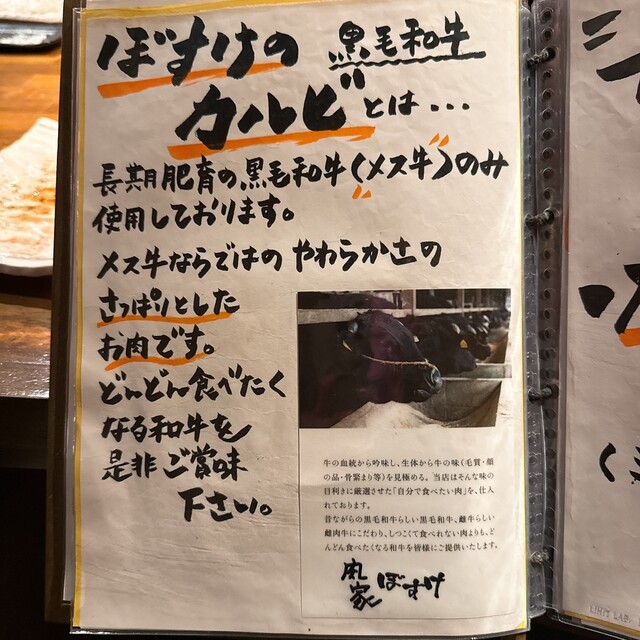 ぼすけの 黒毛和牛
カルビとは…
長期肥育の黒毛和牛(〝メス牛〞)のみ
使用しております。
メス牛ならではのやわらかさの
さっぱりとした
お肉です。
どんどん食べたく
なる和牛を
是非ご賞味
下さい。
牛の血統から吟味し、生体から牛の味(毛質・顔
の品・骨緊まり等)を見極める。当店はそんな味の
目利きに厳選させた「自分で食べたい肉」を、仕入
れております。
昔ながらの黒毛和牛らしい黒毛和牛、雌牛らしい
雌肉牛にこだわり、しつこくて食べれない肉よりも、ど
んどん食べたくなる和牛を皆様にご提供いたします。
ぼすけ
LIHIT LAB.